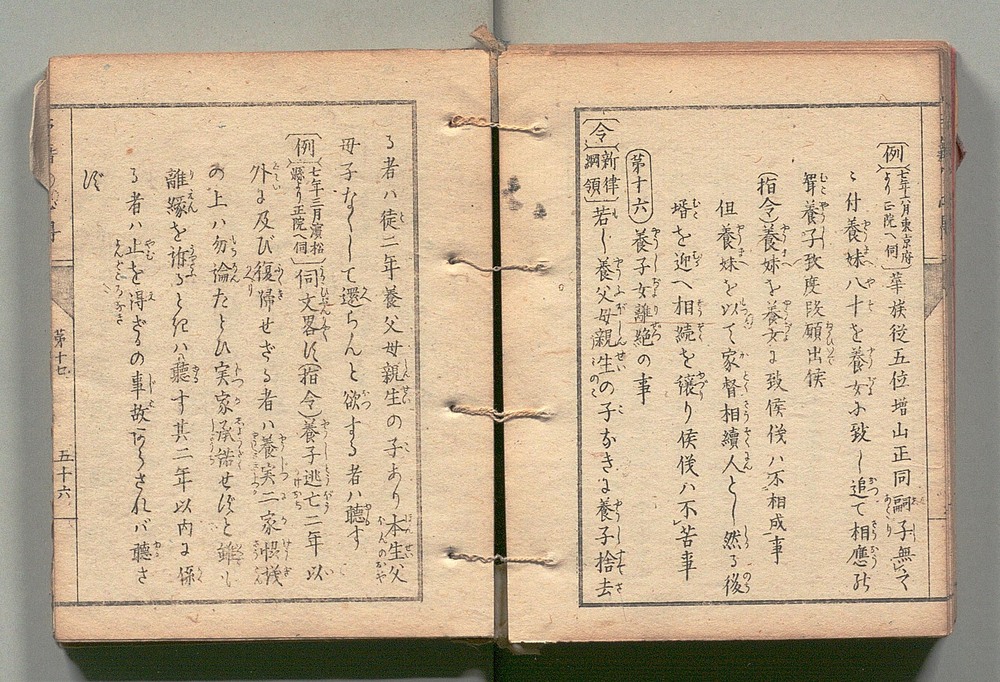 例 七年六月東京府より正院へ伺 華族従五位増山正同嗣子無之
ニ付養妹八十を養女ニ致し追て相應の
聟養子致度段願出候
(指令)養妹を養女ニ致候儀ハ不相成事
但養妹を以て家督相續人とし然る後
壻を迎へ相続を譲り候儀ハ不苦事
第十六 養子女離絶の事
令 新律綱領 若し養父母親生の子なきに養子捨去
る者ハ徒二年養父母親生の子あり本生父
母子なくして還らんと欲する者ハ聽す
例 七年三月濱松縣より正院へ伺 伺文畧ス(指令)養子逃亡二年以
外に及び復帰せざる者ハ養実二家
の上ハ勿論たとひ実家承諾せずと雖も
離縁を訴ると記ハ聽す其二年以内に係
る者ハ止を得ざるの事故あらされバ聽さ
ず
第十七
五十六